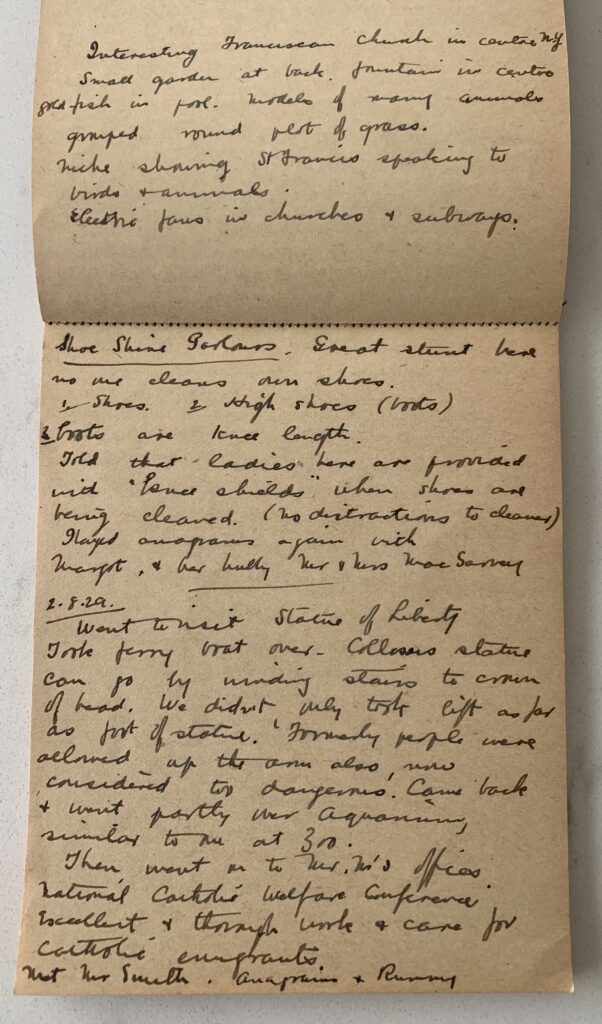 Interesting Franciscan Church in centre N.Y
Small garden at back. fountain in centre
gold fish in pool. Models of many animals
grouped round plot of grass.
Niche showing St Francis speaking to
birds & animals.
Electric fans in churches & subways.
Shoe Shine Parlours. Great stunt here
no one cleans own shoes.
1, Shoes. 2 High shoes (boots)
3 Boots are knee length.
Told that ladies here are provided
with "knee shields" when shoes are
being cleaned. (no distractions to cleaner)
Played anagrams again with
Margot, & her hubby Mr & Mrs Mac
2.8.29.
Went to visit Statue of Liberty
Took ferry boat over. Collosus statue
can go by winding stairs to crown
of head. We didn't only took lift as far
as foot of statue. Formerly people were
allowed up the arm also, now
considered too dangerous. Came back
& went partly over Aquarium,
similar to one at Zoo.
Then went on to Mr. N's offices.
National Catholic Welfare Conference
Excellent & thorough work & care for
Catholic emigrants
Met Mr Smith. Anagrams & Rummy